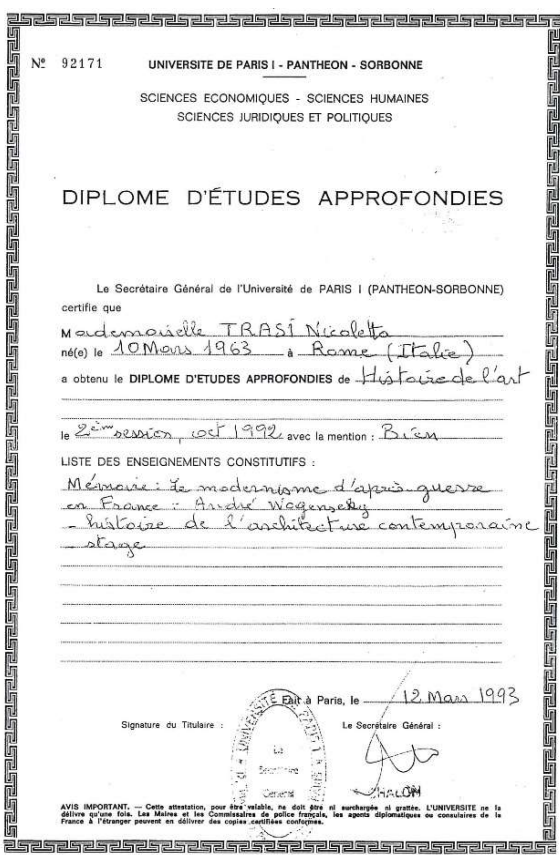 Nº 92171 UNIVERSITE DE PARIS I - PANTHEON - SORBONNE
SCIENCES ECONOMIQUES - SCIENCES HUMAINES
SCIENCES JURIDIQUES ET POLITIQUES
DIPLOME D'ÉTUDES APPROFONDIES
Le Secrétaire Général de l'Université de PARIS I (PANTHEON-SORBONNE)
certifie que
Mademoiselle TRASÍ Nicoletta
né(e) le 10 Mars 1963 à Rome (Italie)
a obtenu le DIPLOME D'ETUDES APPROFONDIES de Histoire de l'art
le 2ème session, oct 1992 avec la mention : Bien
LISTE DES ENSEIGNEMENTS CONSTITUTIFS :
Mémoire : Le modernisme d'après-guerre
en France : André Wogenscky
- histoire de l'architecture contemporaine
- stage
Fait à Paris, le 12 Mars 1993
Signature du Titulaire : Le Secrétaire Général :
UNIVERSITÉ DE PARIS I
Le
Secrétaire
General
AVIS IMPORTANT. — Cette attestation, pour être valable, ne doit être ni surchargée ni grattée. L'UNIVERSITE ne la
délivre qu'une fois. Les Maires et les Commissaires de police français, les agents diplomatiques ou consulaires de la
France à l'étranger peuvent en délivrer des copies certifiées conformes.